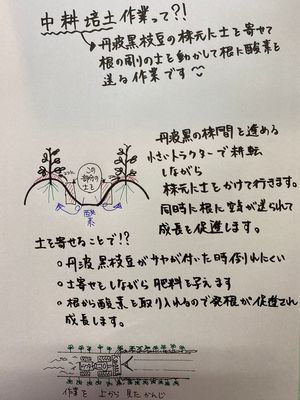 中耕培土作業って?!
丹波黒枝豆の株元に土を寄せて
根の周りの土を動かして根に酸素を
送る作業です
この
部分の
土を
酸素
丹波黒の株間を進める
小さいトラクターで耕転
しながら
株元に土をかけて行きます。
同時に根に空気が送られて
成長を促進します。
土を寄せることで!?
○丹波黒枝豆がサヤが付いた時倒れにくい
○土寄せしながら肥料を与えます
○根から酸素を取り入れるので発根が促進され
成長します。
作業を上から見たかんじ